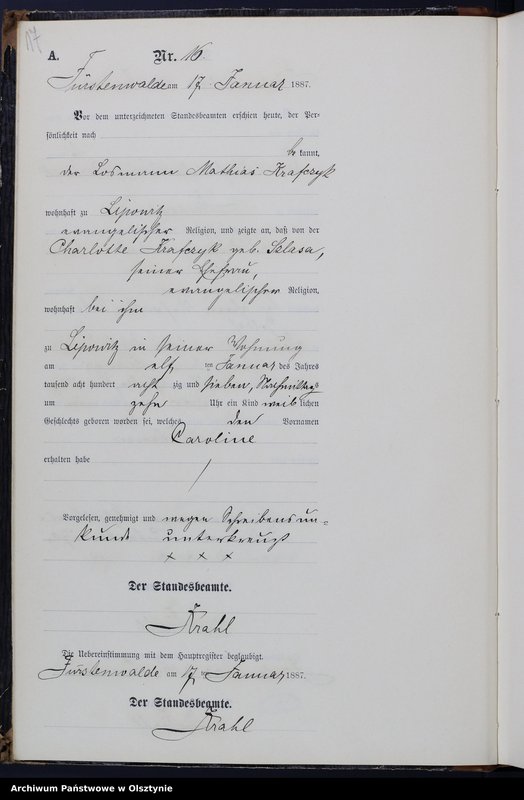 17
A.
Nr. 16.
Fürstenwalde am 17 Januar 1887.
Vor dem unterzeichneten Standesbeamten erschien heute, der Per-
sönlichkeit nach
be kannt,
der Losmann Mathias Krafczyk
wohnhaft zu Lipowitz
evangelischer Religion, und zeigte an, daß von der
Charlotte Krafczyk geb. Selasa,
seiner Ehefrau,
evangelischer Religion,
wohnhaft bei ihm
zu Lipowitz in seiner Wohnung
am elf ten Januar des Jahres
tausend acht hundert acht zig und sieben, Nachmittags
um zehn Uhr ein Kind weib lichen
Geschlechts geboren worden sei, welches den Vornamen
Caroline
erhalten habe
Vorgelesen, genehmigt und wegen Schreibensun=
kunde unterkreuzt
x x x
Der Standesbeamte.
Krahl
Die Uebereinstimmung mit dem Hauptregister beglaubigt.
Fürstenwalde am 17 ten Januar 1887.
Der Standesbeamte.
Krahl
Archiwum Państwowe w Olsztynie